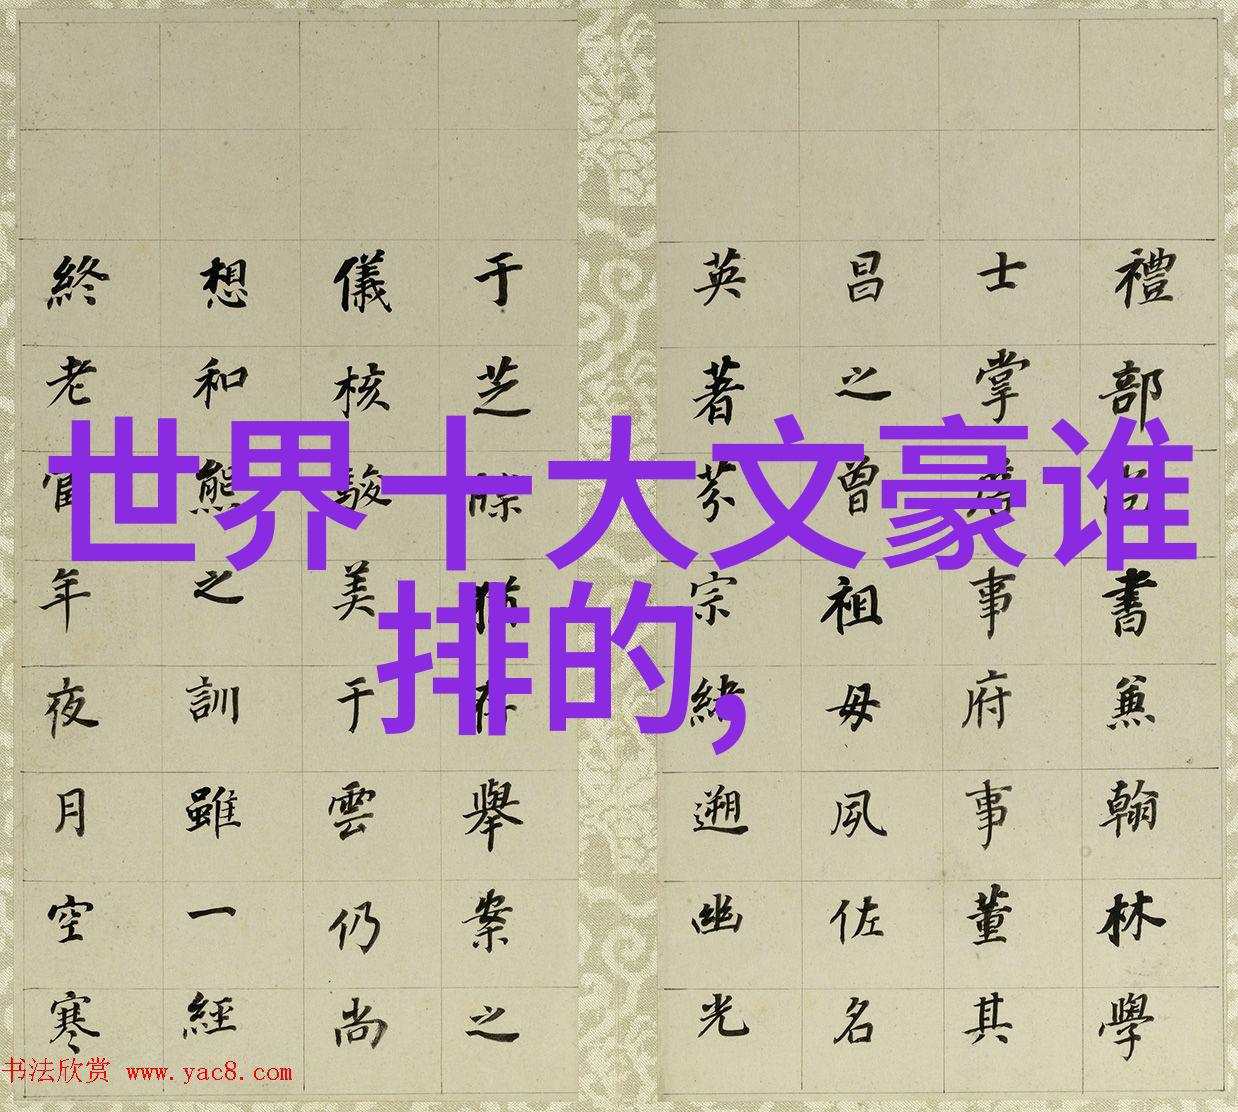 世界十大文豪谁
排的，
禮部尚書兼翰林學
士掌詹事府事董其
昌之曾祖母夙佐名
英著芬宗緒遡幽光
于芝牒猶存舉案之
儀核駿美于雲仍尚
想和熊之訓雖一經
終老年夜月空寒
书法欣赏 www.yac8.com